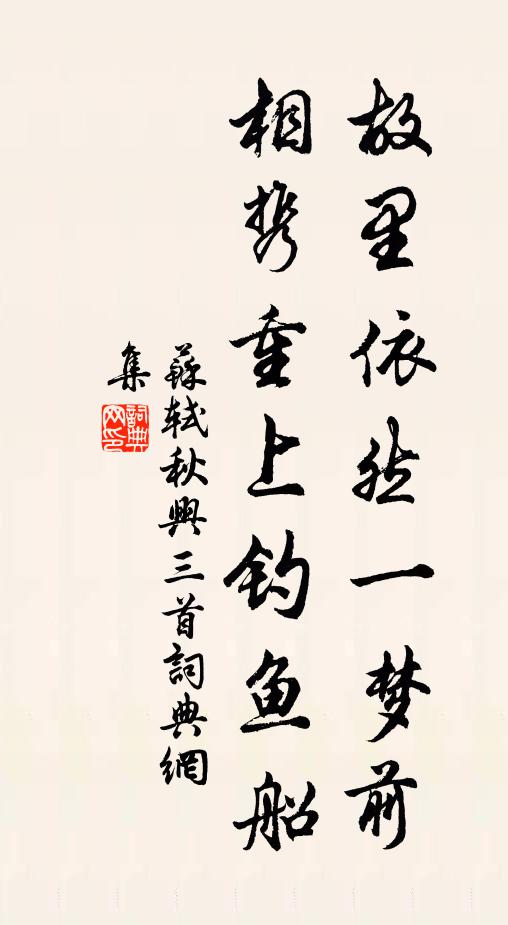 故里依然一梦前
相携重上钓鱼船
蘇軾秋興三首詞典網
集
詞典
网印